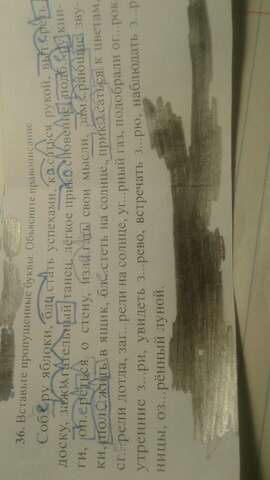 36. Вставьте пропущенные буквы. Объясните правописание
Соберу яблоки, блистать успехами, касаться рукой, вытереть
доску, зажигательный танец, лёгкое прикосновение, подобрать кни-
ги, опереться о стену, излагать свои мысли, замирающие зву-
ки, положить в ящик, блестеть на солнце, прикасаться к цветам,
сг...рели дотла, заг...рели на солнце, уг...рный газ, подобрали ог...рок
утренние з...ри, увидеть з...рево, встречать з...рю, наблюдать з...р
ницы, оз...рённый луной.